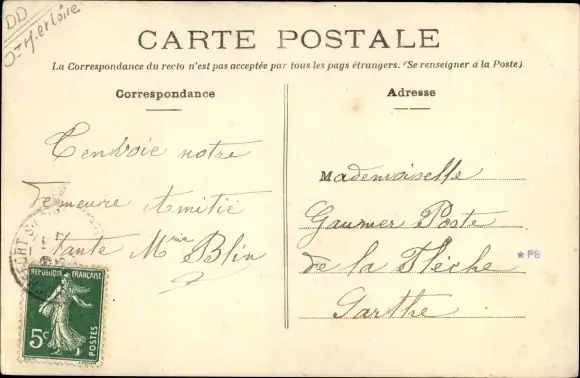 DD
CARTE POSTALE
La Correspondance du recto n'est pas acceptée par tous les pays étrangers. (Se renseigner à la Poste)
Correspondance
T'envoie notre
demeure Amitié
tante Mme Blin
RÉPUBLIQUE FRANÇAISE
5c
POSTES
Adresse
Mademoiselle
Gaumer Poste
de la Flèche
Sarthe
★ PB